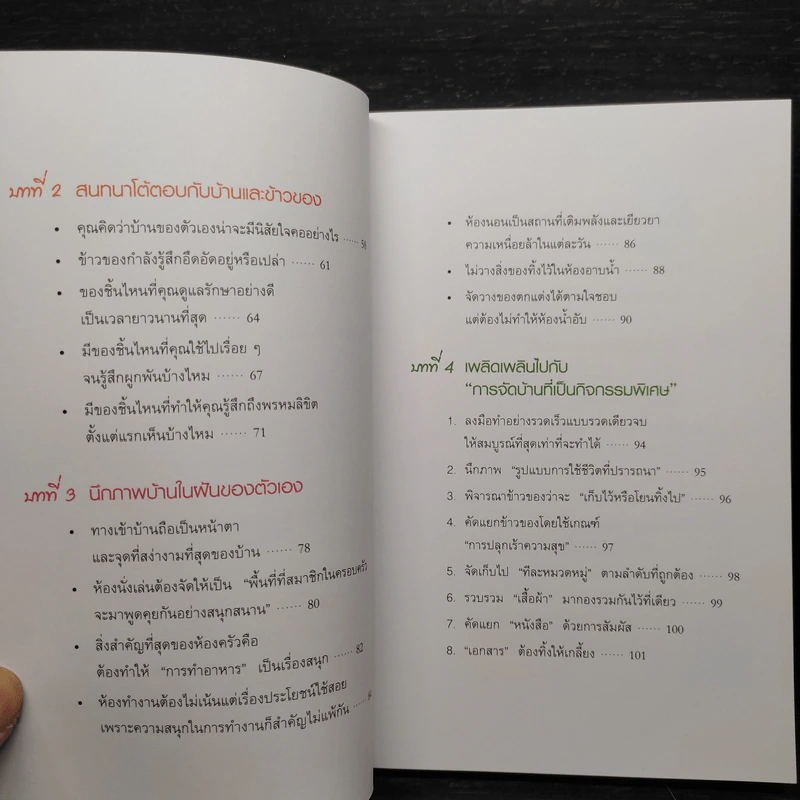 บทที่ 2 สนทนาโต้ตอบกับบ้านและข้าวของ
• คุณคิดว่าบ้านของตัวเองน่าจะมีนิสัยใจคออย่างไร ......
• ข้าวของกำลังรู้สึกอึดอัดอยู่หรือเปล่า ...... 61
• ของชิ้นไหนที่คุณดูแลรักษาอย่างดี
เป็นเวลายาวนานที่สุด ...... 64
• มีของชิ้นไหนที่คุณใช้ไปเรื่อย ๆ
จนรู้สึกผูกพันบ้างไหม ...... 67
• มีของชิ้นไหนที่ทำให้คุณรู้สึกถึงพรหมลิขิต
ตั้งแต่แรกเห็นบ้างไหม ...... 71
บทที่ 3 นึกภาพบ้านในฝันของตัวเอง
• ทางเข้าบ้านถือเป็นหน้าตา
และจุดที่สง่างามที่สุดของบ้าน ...... 78
• ห้องนั่งเล่นต้องจัดให้เป็น “พื้นที่ที่สมาชิกในครอบครัว
จะมาพูดคุยกันอย่างสนุกสนาน” ...... 80
• สิ่งสำคัญที่สุดของห้องครัวคือ
ต้องทำให้ “การทำอาหาร” เป็นเรื่องสนุก ...... 82
• ห้องทำงานต้องไม่เน้นแต่เรื่องประโยชน์ใช้สอย
เพราะความสนุกในการทำงานก็สำคัญไม่แพ้กัน ......
• ห้องนอนเป็นสถานที่เติมพลังและเยียวยา
ความเหนื่อยล้าในแต่ละวัน ...... 86
• ไม่วางสิ่งของทิ้งไว้ในห้องอาบน้ำ ...... 88
• จัดวางของตกแต่งได้ตามใจชอบ
แต่ต้องไม่ทำให้ห้องน้ำอับ ...... 90
บทที่ 4 เพลิดเพลินไปกับ
“การจัดบ้านที่เป็นกิจกรรมพิเศษ”
1. ลงมือทำอย่างรวดเร็วแบบรวดเดียวจบ
ให้สมบูรณ์ที่สุดเท่าที่จะทำได้ ...... 94
2. นึกภาพ “รูปแบบการใช้ชีวิตที่ปรารถนา” ...... 95
3. พิจารณาข้าวของว่าจะ “เก็บไว้หรือโยนทิ้งไป” ...... 96
4. คัดแยกข้าวของโดยใช้เกณฑ์
“การปลุกเร้าความสุข” ...... 97
5. จัดเก็บไป “ทีละหมวดหมู่” ตามลำดับที่ถูกต้อง ...... 98
6. รวบรวม “เสื้อผ้า” มากองรวมกันไว้ที่เดียว ...... 99
7. คัดแยก “หนังสือ” ด้วยการสัมผัส ...... 100
8. “เอกสาร” ต้องทิ้งให้เกลี้ยง ...... 101